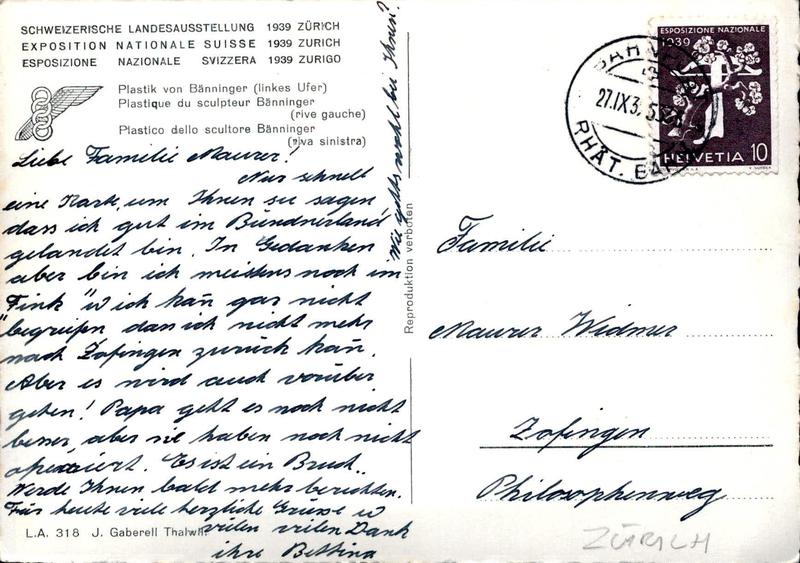 SCHWEIZERISCHE LANDESAUSSTELLUNG 1939 ZÜRICH
EXPOSITION NATIONALE SUISSE 1939 ZURICH
ESPOSIZIONE NAZIONALE SVIZZERA 1939 ZURIGO
Plastik von Bänninger (linkes Ufer)
Plastique du sculpteur Bänninger
(rive gauche)
Plastico dello scultore Bänninger
(riva sinistra)
Liebe Familie Maurer!
Nur schnell
eine Karte, um Ihnen zu sagen
dass ich gut im Bündnerland
gelandet bin. In Gedanken
aber bin ich meistens noch im
"Fink" u ich kan̄ gar nicht
begreifen dass ich nicht mehr
nach Zofingen zurück kan̄.
Aber es wird auch vorüber
gehen! Papa geht es noch nicht
besser, aber sie haben noch nicht
operiert. Es ist ein Bruch.
Werde Ihnen bald mehr berichten.
Für heute viele herzliche Grüsse u
vielen vielen Dank
ihre Bettina
Wie gehts wohl bei Ihnen?
L.A. 318 J. Gaberell Thalwil
Reproduktion verboten
BAHN
27.IX.3
RHÄT. BA
ESPOSIZIONE NAZIONALE
1939
HELVETIA 10
Familie
Maurer Widmer
Zofingen
Philosophenweg
ZÜRICH